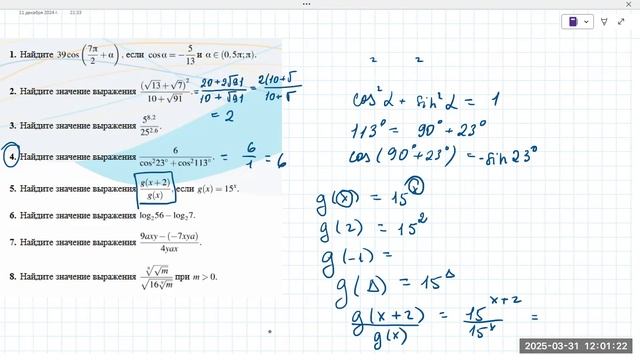 11 декабря 2024 г. 21:33
1. Найдите 39cos(7π/2 + α), если cos α = −5/13 и α ∈ (0,5π; π).
2. Найдите значение выражения (√13 + √7)²/(10 + √91) = (20 + 2√91)/(10 + √91) = 2(10 + √/10 + √
= 2
3. Найдите значение выражения 5^8,2/25^2,6.
4. Найдите значение выражения 6/(cos² 23° + cos² 113°) = 6/1 = 6
5. Найдите значение выражения g(x + 2)/g(x), если g(x) = 15ˣ.
6. Найдите значение выражения log₂ 56 − log₂ 7.
7. Найдите значение выражения (9axy − (−7xya))/4yax.
8. Найдите значение выражения при m > 0.
2 2
cos² α + sin² α = 1
113° = 90° + 23°
cos(90° + 23°) = −sin 23°
g(x) = 15ˣ
g(2) = 15²
g(-1) =
g(Δ) = 15^Δ
g(x + 2)/g(x) = 15^(x+2)/15ˣ =
2025-03-31 12:01:22